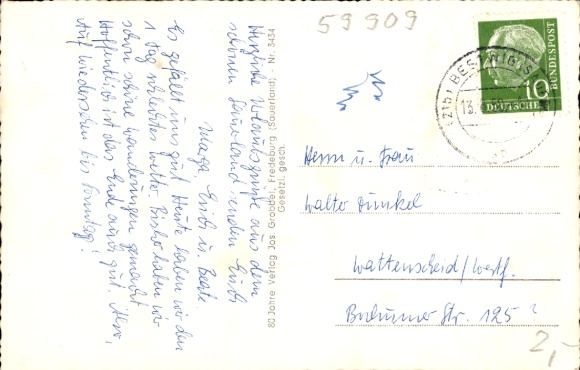 59909
Herzliche Urlaubsgrüße aus dem
schönen Sauerland senden Euch
Maga Erich u. Beate
Es gefällt uns gut. Heute haben wir den
1 Tag schlechtes Wetter. Bisher haben wir
schon schöne Wanderungen gemacht.
Hoffentlich ist das Ende auch gut. Also,
Auf Wiedersehen bis Sonntag!
80 Jahre Verlag Jos. Grobbel, Fredeburg (Sauerland) - Nr. 3434
Gesetzl. gesch.
(21b) BESTWIG
13.
10
DEUTSCHE
BUNDESPOST
Herrn u. Frau
Walter Dunkel
Wattenscheid/Westf.
Bochumer Str. 125
2,-